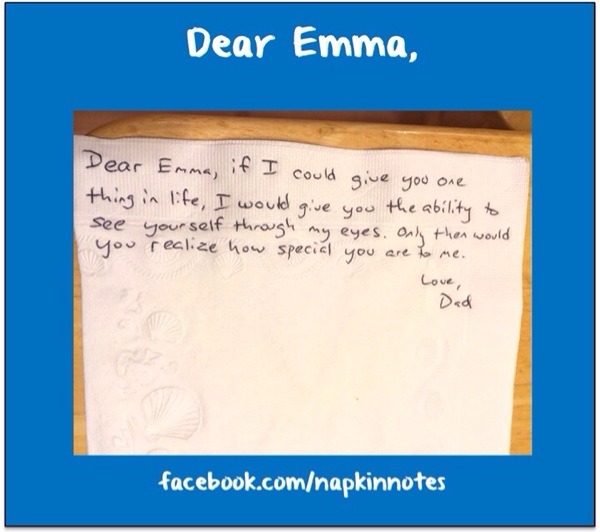 Dear Emma,
Dear Emma, if I could give you one
thing in life, I would give you the ability to
see yourself through my eyes. Only then would
you realize how special you are to me.
Love,
Dad
facebook.com/napkinnotes